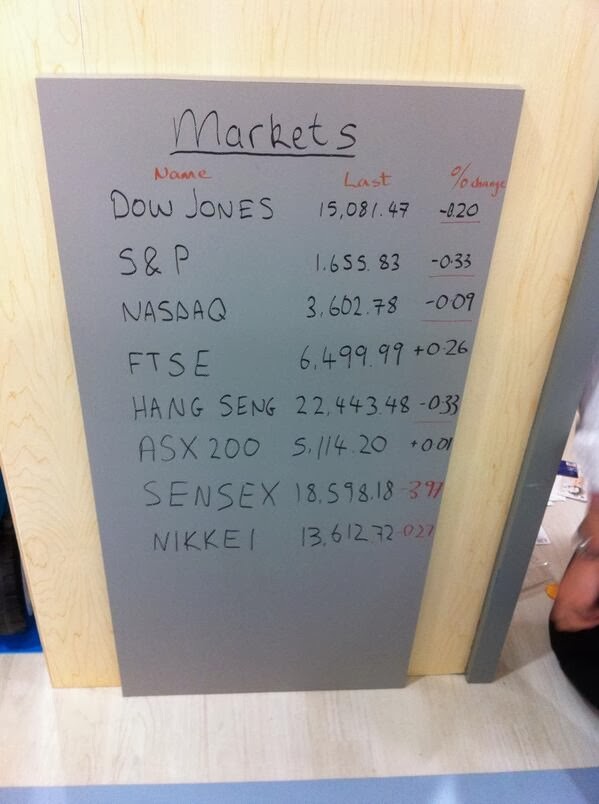 Markets
Name Last % change
DOW JONES 15,081.47 -0.20
S&P 1.655.83 -0.33
NASDAQ 3,602.78 -0.09
FTSE 6,499.99 +0.26
HANG SENG 22,443.48 -0.33
ASX 200 5,114.20 +0.01
SENSEX 18,598.18 -3.97
NIKKEI 13,612.72 -0.27